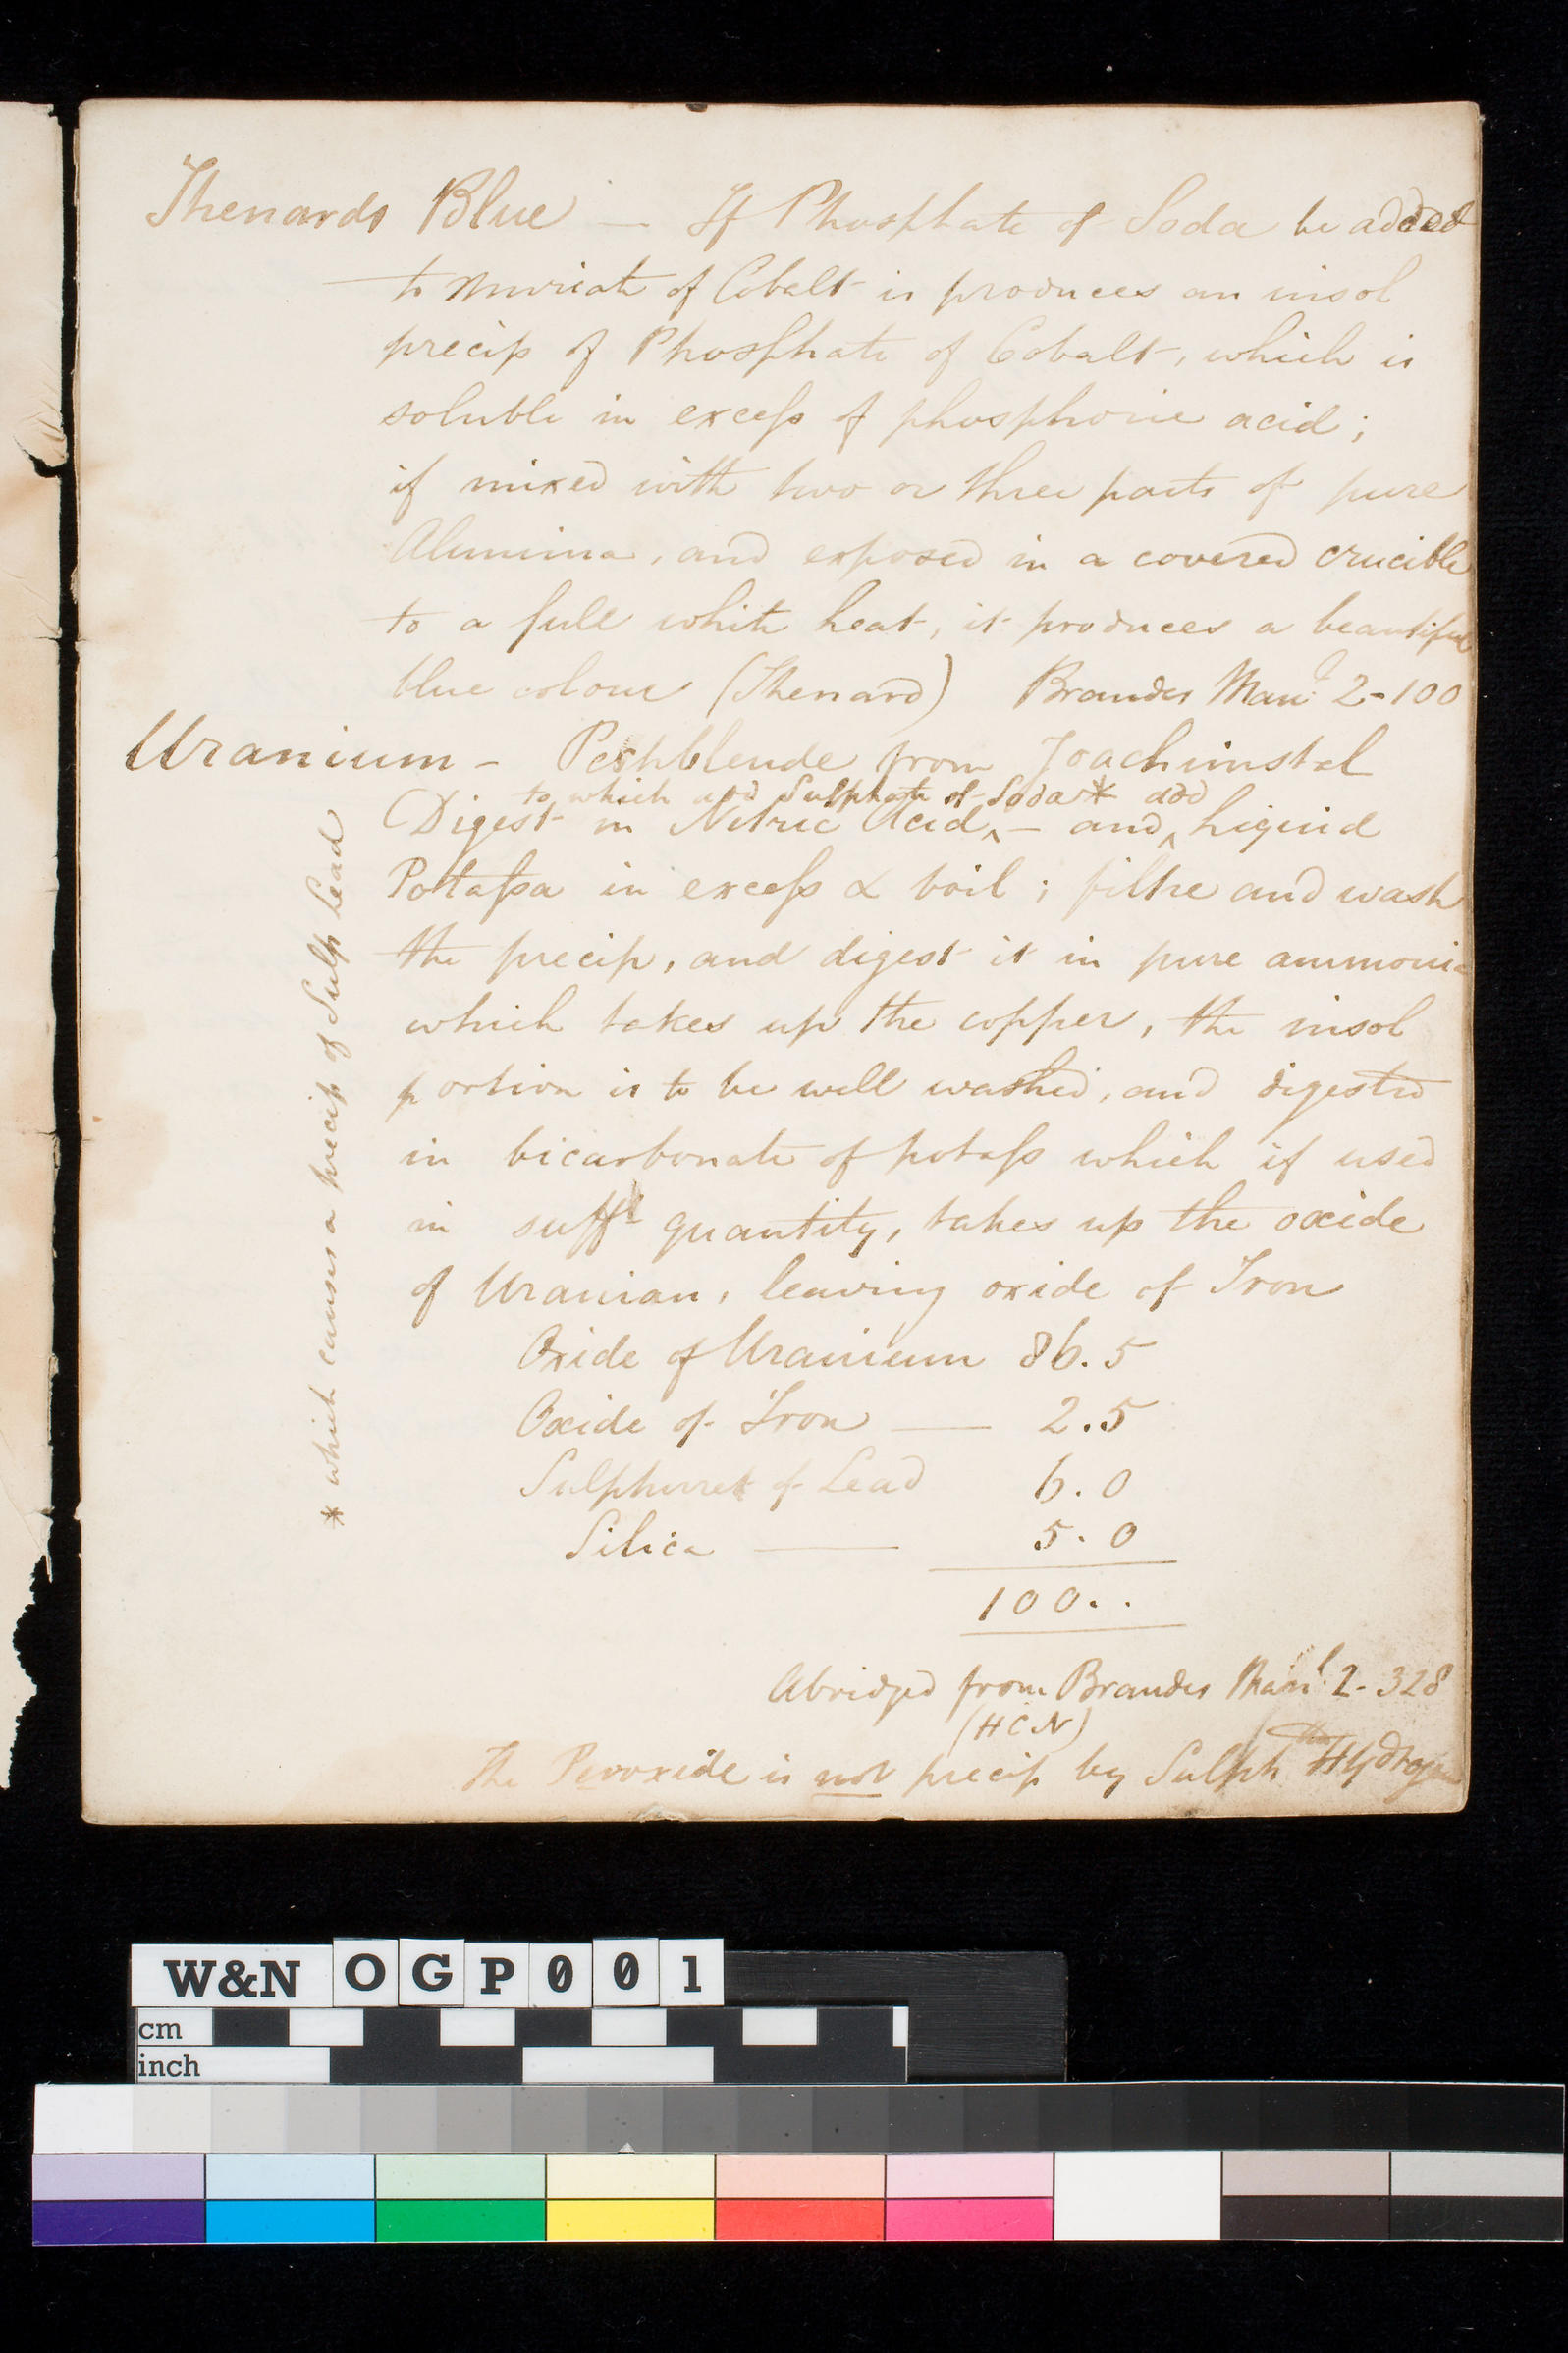 Thenards Blue — If Phosphate of Soda be added
to Muriate of Cobalt is produces an insol
precip of Phosphate of Cobalt, which is
soluble in excess of phosphoric acid;
if mixed with two or three parts of pure
Alumina, and exposed in a covered crucible
to a full white heat, it produces a beautiful
blue colour (Thenard) Brandes Manl 2-100
Uranium - Pechblende from Joachimstal
to which add Sulphate of Soda* add
Digest in Nitric Acid, ^ — and ^ liquid
Potassa in excess & boil; filtre and wash
the precip, and digest it in pure ammonia
which takes up the copper, the insol
portion is to be well washed, and digested
in bicarbonate of potass which if used
in sufft quantity, takes up the oxide
of Uranian, leaving oxide of Iron
Oxide of Uranium 86.5
Oxide of Iron — 2.5
Sulphuret of Lead 6.0
Silica — 5.0
100..
Abridged from Brandes Manl. 2-328
(HCN)
The Peroxide is not precip by Sulph Hydrogen
* which causes a precip of Sulph Lead
W&N OGP001
cm
inch